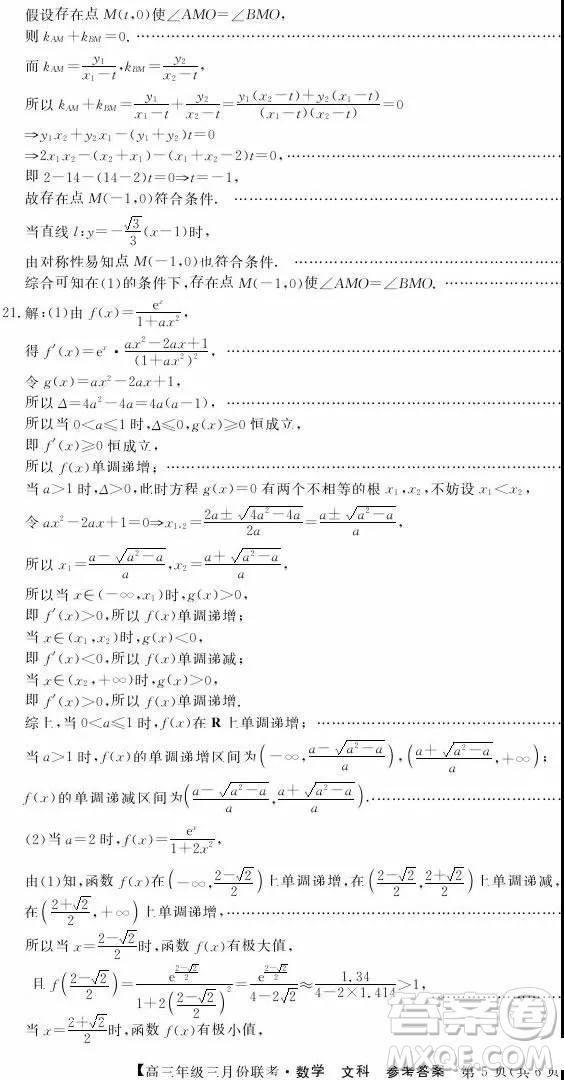 假设存在点 M(t,0)使∠AMO=∠BMO,
则 k_{AM}+k_{BM}=0. ……
而 k_{AM}=\frac{y_1}{x_1-t},k_{BM}=\frac{y_2}{x_2-t},
所以 k_{AM}+k_{BM}=\frac{y_1}{x_1-t}+\frac{y_2}{x_2-t}=\frac{y_1(x_2-t)+y_2(x_1-t)}{(x_1-t)(x_2-t)}=0
⇒y_1x_2+y_2x_1-(y_1+y_2)t=0
⇒2x_1x_2-(x_2+x_1)-(x_1+x_2-2)t=0, ……
即 2-14-(14-2)t=0⇒t=-1,
故存在点 M(-1,0)符合条件. ……
当直线 l:y=-\frac{\sqrt{3}}{3}(x-1)时,
由对称性易知点 M(-1,0)也符合条件. ……
综合可知在(1)的条件下,存在点 M(-1,0)使∠AMO=∠BMO. ……
21.解:(1)由 f(x)=\frac{e^x}{1+ax^2},
得 f′(x)=e^x·\frac{ax^2-2ax+1}{(1+ax^2)^2}, ……
令 g(x)=ax^2-2ax+1,
所以 Δ=4a^2-4a=4a(a-1), ……
所以当 0<a≤1 时,Δ≤0,g(x)≥0 恒成立,
即 f′(x)≥0 恒成立,
所以 f(x)单调递增; ……
当 a>1 时,Δ>0,此时方程 g(x)=0 有两个不相等的根 x_1,x_2,不妨设 x_1<x_2,
令 ax^2-2ax+1=0⇒x_{1,2}=\frac{2a±\sqrt{4a^2-4a}}{2a}=\frac{a±\sqrt{a^2-a}}{a},
所以 x_1=\frac{a-\sqrt{a^2-a}}{a},x_2=\frac{a+\sqrt{a^2-a}}{a},
所以当 x∈(-∞,x_1)时,g(x)>0,
即 f′(x)>0,所以 f(x)单调递增;
当 x∈(x_1,x_2)时,g(x)<0,
即 f′(x)<0,所以 f(x)单调递减;
当 x∈(x_2,+∞)时,g(x)>0,
即 f′(x)>0,所以 f(x)单调递增.
综上,当 0<a≤1 时,f(x)在 R 上单调递增; ……
当 a>1 时,f(x)的单调递增区间为(-∞,\frac{a-\sqrt{a^2-a}}{a}),(\frac{a+\sqrt{a^2-a}}{a},+∞);
f(x)的单调递减区间为(\frac{a-\sqrt{a^2-a}}{a},\frac{a+\sqrt{a^2-a}}{a}). ……
(2)当 a=2 时,f(x)=\frac{e^x}{1+2x^2},
由(1)知,函数 f(x)在(-∞,\frac{2-\sqrt{2}}{2})上单调递增,在(\frac{2-\sqrt{2}}{2},\frac{2+\sqrt{2}}{2})上单调递减,
在(\frac{2+\sqrt{2}}{2},+∞)上单调递增, ……
所以当 x=\frac{2-\sqrt{2}}{2}时,函数 f(x)有极大值,
且 f(\frac{2-\sqrt{2}}{2})=\frac{e^{\frac{2-\sqrt{2}}{2}}}{1+2(\frac{2-\sqrt{2}}{2})^2}=\frac{e^{\frac{2-\sqrt{2}}{2}}}{4-2\sqrt{2}}≈\frac{1.34}{4-2×1.414}>1, ……
当 x=\frac{2+\sqrt{2}}{2}时,函数 f(x)有极小值,
【高三年级三月份联考·数学 文科 参考答案 第 5 页(共 6 页